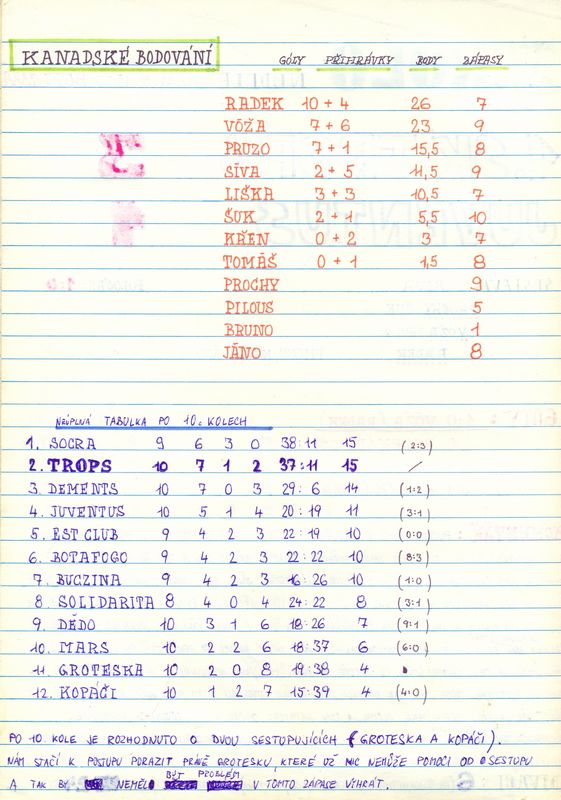 KANADSKÉ BODOVÁNÍ GÓLY PŘIHRÁVKY BODY ZÁPASY
RADEK 10 + 4 26 7
VÓŽA 7 + 6 23 9
PRUZO 7 + 1 15,5 8
SÍVA 2 + 5 11,5 9
LIŠKA 3 + 3 10,5 7
ŠUK 2 + 1 5,5 10
KŘEN 0 + 2 3 7
TOMÁŠ 0 + 1 1,5 8
PROCHY 9
PILOUS 5
BRUNO 1
JÁNO 8
NEÚPLNÁ TABULKA PO 10. KOLECH
1. SOCRA 9 6 3 0 38:11 15 (2:3)
2. TROPS 10 7 1 2 37:11 15 /
3. DEMENTS 10 7 0 3 29:6 14 (1:2)
4. JUVENTUS 10 5 1 4 20:19 11 (3:1)
5. EST CLUB 9 4 2 3 22:19 10 (0:0)
6. BOTAFOGO 9 4 2 3 22:22 10 (8:3)
7. BUCZINA 9 4 2 3 16:26 10 (1:0)
8. SOLIDARITA 8 4 0 4 24:22 8 (3:1)
9. DĚDO 10 3 1 6 18:26 7 (9:1)
10. MARS 10 2 2 6 18:37 6 (6:0)
11. GROTESKA 10 2 0 8 19:38 4 •
12. KOPÁČI 10 1 2 7 15:39 4 (4:0)
PO 10. KOLE JE ROZHODNUTO O DVOU SESTUPUJÍCÍCH (GROTESKA A KOPÁČI).
NÁM STAČÍ K POSTUPU PORAZIT PRÁVĚ GROTESKU, KTERÉ UŽ NIC NEMŮŽE POMOCI OD SESTUPU
A TAK BY NEMĚLO BÝT PROBLÉM V TOMTO ZÁPASE VYHRÁT.